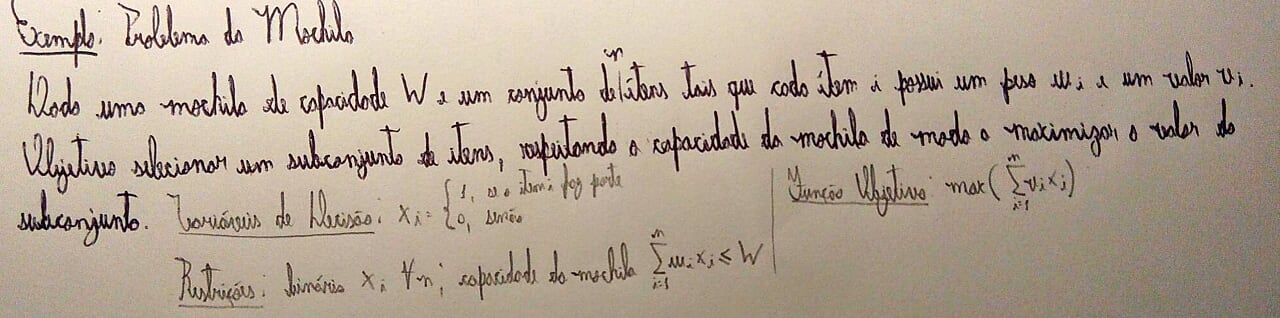 Exemplo: Problema da Mochila
Dada uma mochila de capacidade W e um conjunto de n ítens tais que cada ítem i possui um peso wi e um valor vi.
Objetivo selecionar um subconjunto de itens, respeitando a capacidade da mochila de modo a maximizar o valor do
subconjunto. Variáveis de Decisão: xi = { 1, se o item i faz parte
0, senão
Função Objetivo: max( ∑_{i=1}^{n} vi xi )
Restrições: binária xi ∀n; capacidade da mochila ∑_{i=1}^{n} wi xi ≤ W